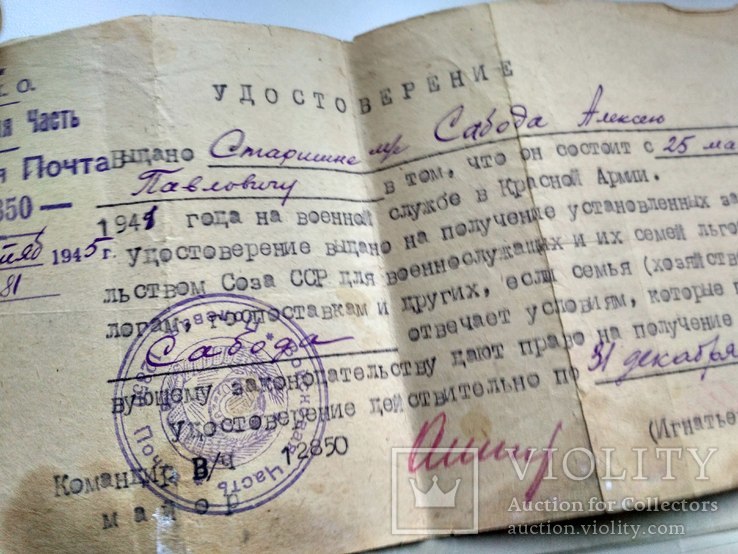 К.О.
я Часть
я Почта
850 —
1945 г.
81
УДОСТОВЕРЕНИЕ
Выдано Старшине мр Сабода Алексею
Павловичу в том, что он состоит с 25 ма
1941 года на военной службе в Красной Армии.
удостоверение выдано на получение установленных за
льством Союза ССР для военнослужащих и их семей льгот
логам, госпоставкам и других, если семья (хозяйстве
Сабода отвечает условиям, которые п
вующему законодательству дают право на получение
удостоверение действительно по 31 декабря
Командир В/Ч 12850
майор
(Игнатье
Полевая Почта
Войсковая Часть
VIOLITY
Auction for Collectors
auction.violity.com